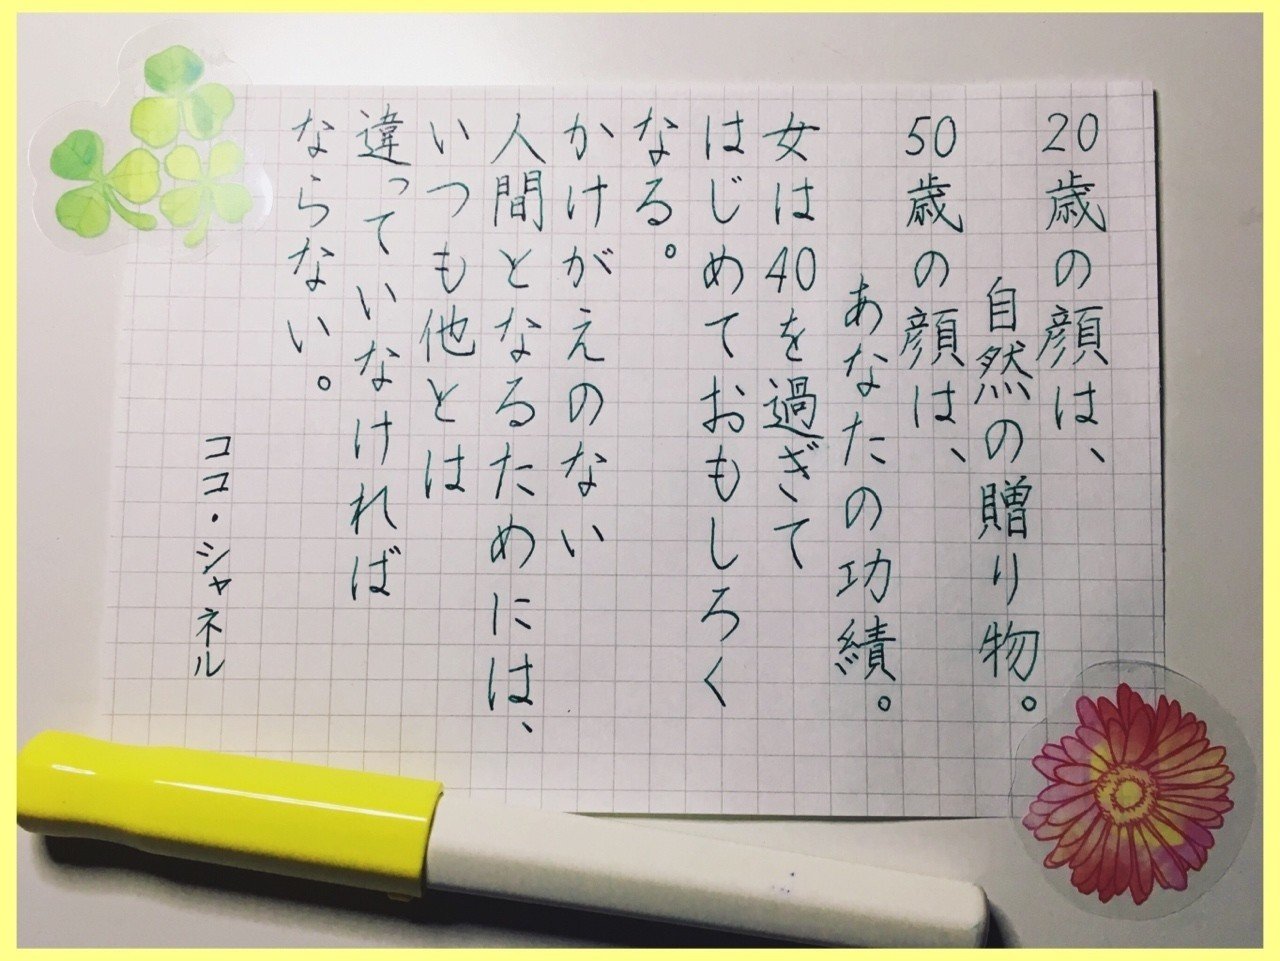 20歳の顔は、
自然の贈り物。
50歳の顔は、
あなたの功績。
女は40を過ぎて
はじめておもしろく
なる。
かけがえのない
人間となるためには、
いつも他とは
違っていなければ
ならない。
ココ・シャネル